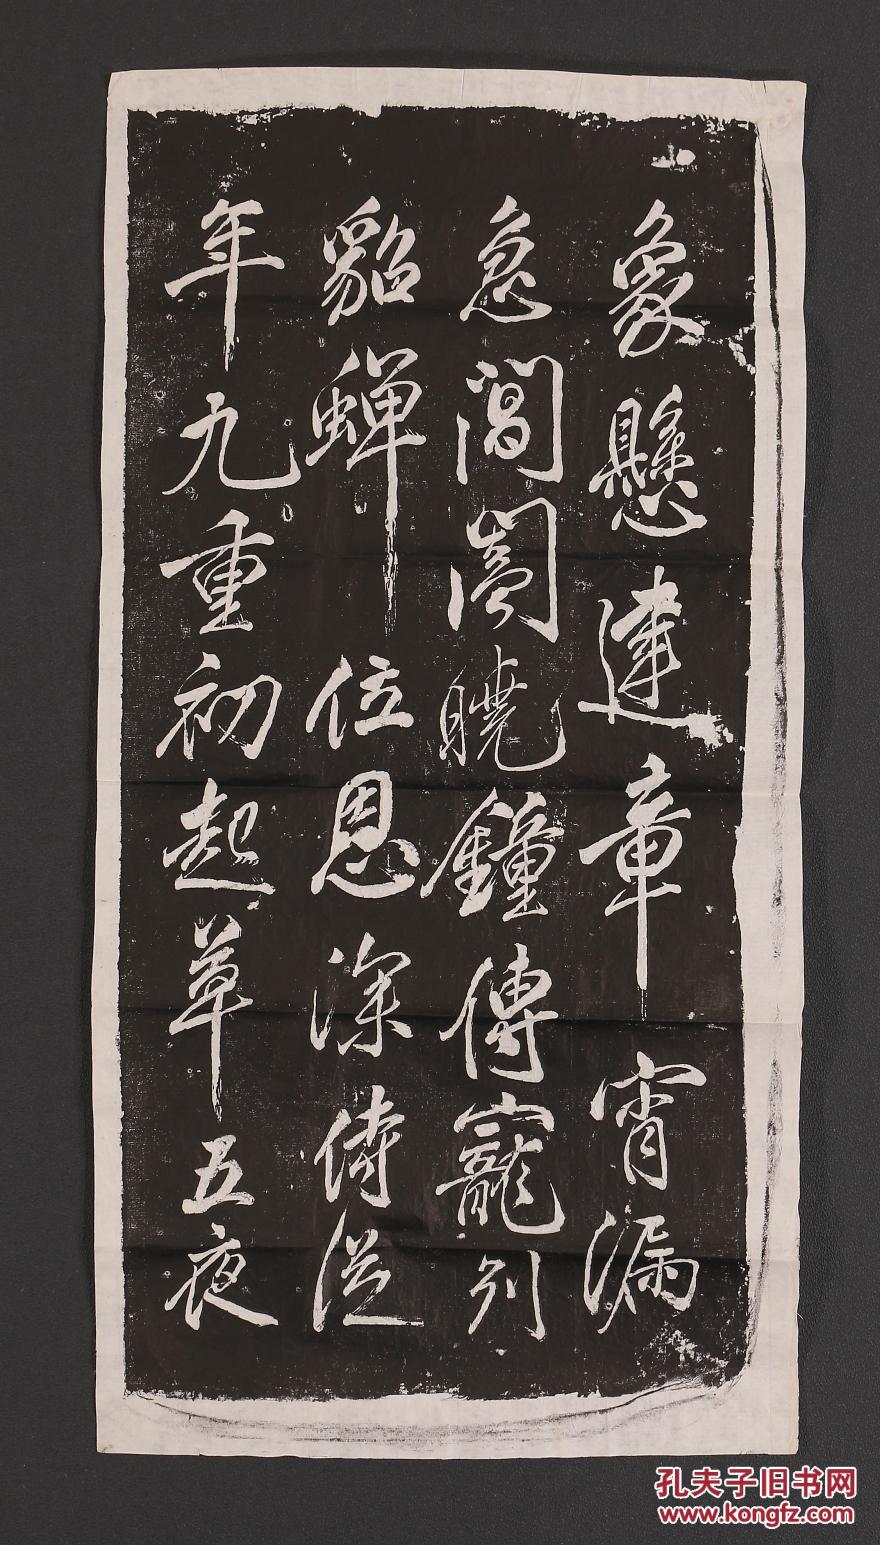 象懸建章宵漏
急閶闔曉鐘傳寵列
貂蟬位恩深侍從
年九重初起草五夜
孔夫子旧书网
www.kongfz.com